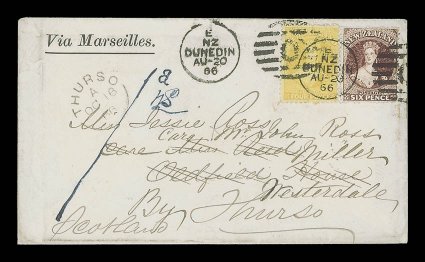 Via Marseilles.
E
NZ
DUNEDIN
AU-20
66
E
NZ
DUNEDIN
AU-20
66
NEW ZEALAND
SIX PENCE
THURSO
A
OC 18
Miss Jessie Ross
Care Mr John Ross
Care Miss Miller
Oldfield House
Westerdale
By Thurso
Scotland